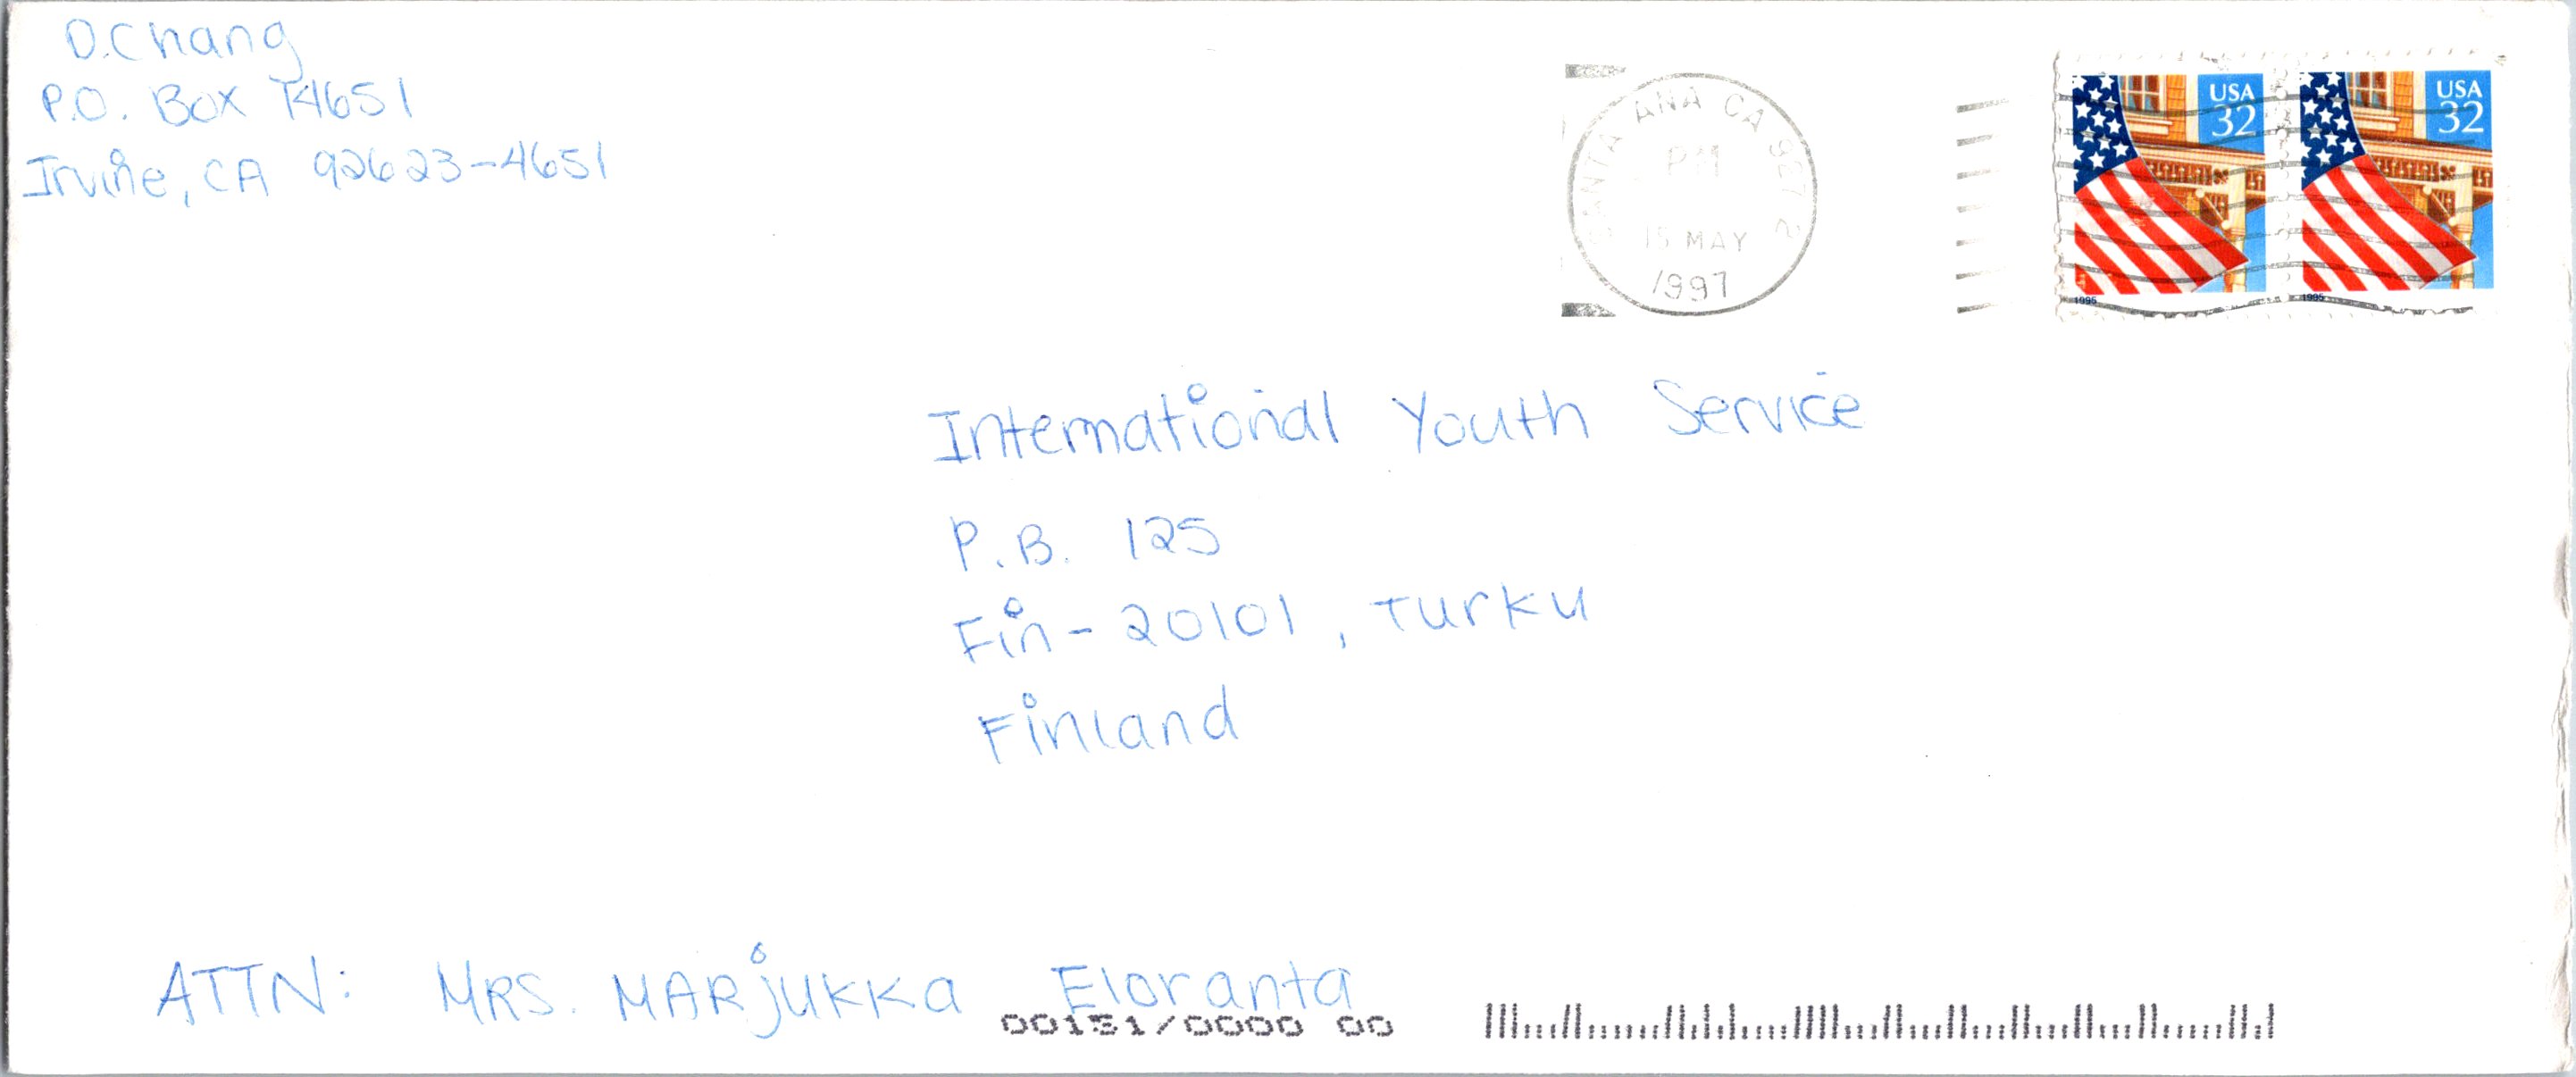 D.Chang
P.O. Box 14651
Irvine, CA 92623-4651
SANTA ANA CA 927 2
PM
15 MAY
1997
USA
32
1995
USA
32
1995
International Youth Service
P.B. 125
Fin - 20101, Turku
Finland
ATTN: MRS. MARjUKKa Eloranta
00131/0000 00